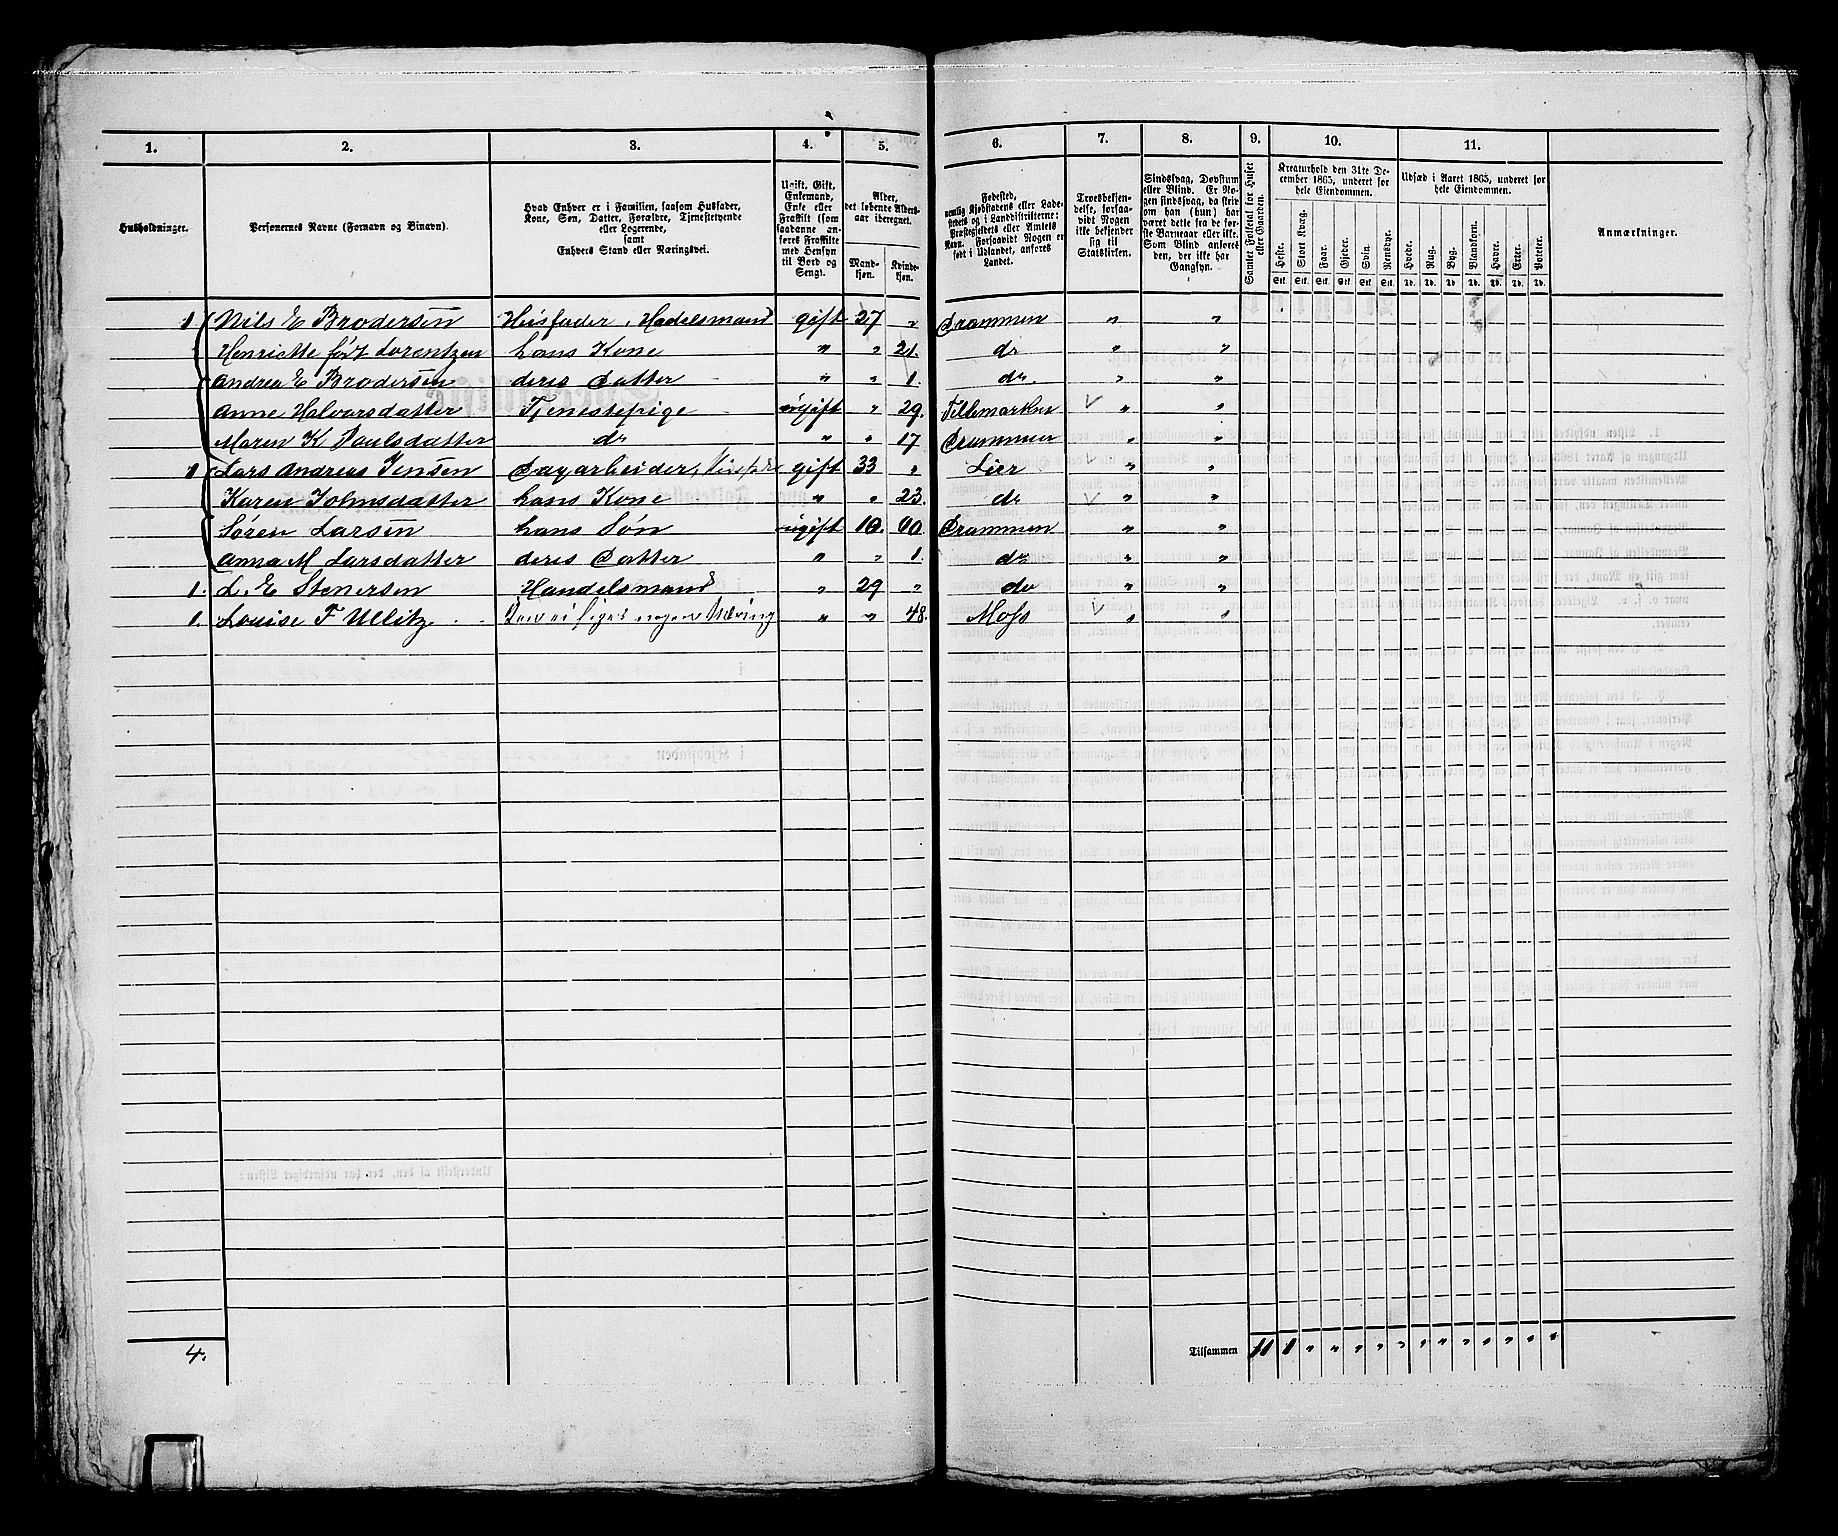 1. 2. 3. 4. 5. 6. 7. 8. 9. 10. 11.
Husholdninger.
Personernes Navne (Fornavn og Binavn).
Hvad Enhver er i Familien, saasom Husfader,
Kone, Søn, Datter, Forældre, Tjenestetyende
eller Logerende,
samt
Enhvers Stand eller Næringsvei.
Ugift, Gift,
Enkemand,
Enke eller
Fraskilt (som
saadanne an-
føres Fraskilte
med Hensyn
til Bord og
Seng).
Alder,
det løbende Alders-
aar iberegnet.
Mand-
kjøn.
Kvinde-
kjøn.
Fødested,
nemlig Kjøbstadens eller Lade-
stedets og i Landdistrikterne:
Præstegjeldets eller Amtets
Navn. Forsaavidt Nogen er
født i Udlandet, anføres
Landet.
Troesbekjen-
delse, forsaa-
vidt Nogen
ikke bekjender
sig til
Statskirken.
Sindssvag, Døvstum
eller Blind. Er No-
gen sindssvag, da skriv
om han (hun) har
været dette fra de før-
ste Barneaar eller ikke.
Som Blind anføres
den, der ikke har
Gangsyn.
Samlet Folketal for Huset
eller Gaarden.
Kreaturhold den 31te De-
cember 1865, underet for
hele Eiendommen.
Heste. Stort Kvæg. Faar. Gjeder. Svin. Rensdyr.
Stk. Stk. Stk. Stk. Stk. Stk.
Udsæd i Aaret 1865, underet for
hele Eiendommen.
Hvede. Rug. Byg. Blandkorn. Havre. Erter. Poteter.
Td. Td. Td. Td. Td. Td. Td.
Anmærkninger.
1 Nils E Brodersen Huusfader, Hadelsmand gift 27 " Drammen " "
Henriette født Lorentzen hans Kone " " 21. do " "
Andrea E Brodersen deres Datter " " 1. do. " "
Anne Halvorsdatter Tjenestepige ugift " 29. Tellemarken " "
Maren K Paulsdatter do " " 17 Drammen " "
1 Lars Andreas Jensen Dagarbeider, gift 33 " Lier " "
Karen Johnsdatter hans Kone " " 23. do " "
Søren Larsen hans Søn ugift 10. Drammen " "
Anna M Larsdatter deres Datter " " 1. do " "
1. L. E Stenersen Handelsmand " 29 " do " "
1. Louise F Ullitz nogen Næring " " 48. Moss " "
4.
Tilsammen 11 1 " " " " " " " " " " " "